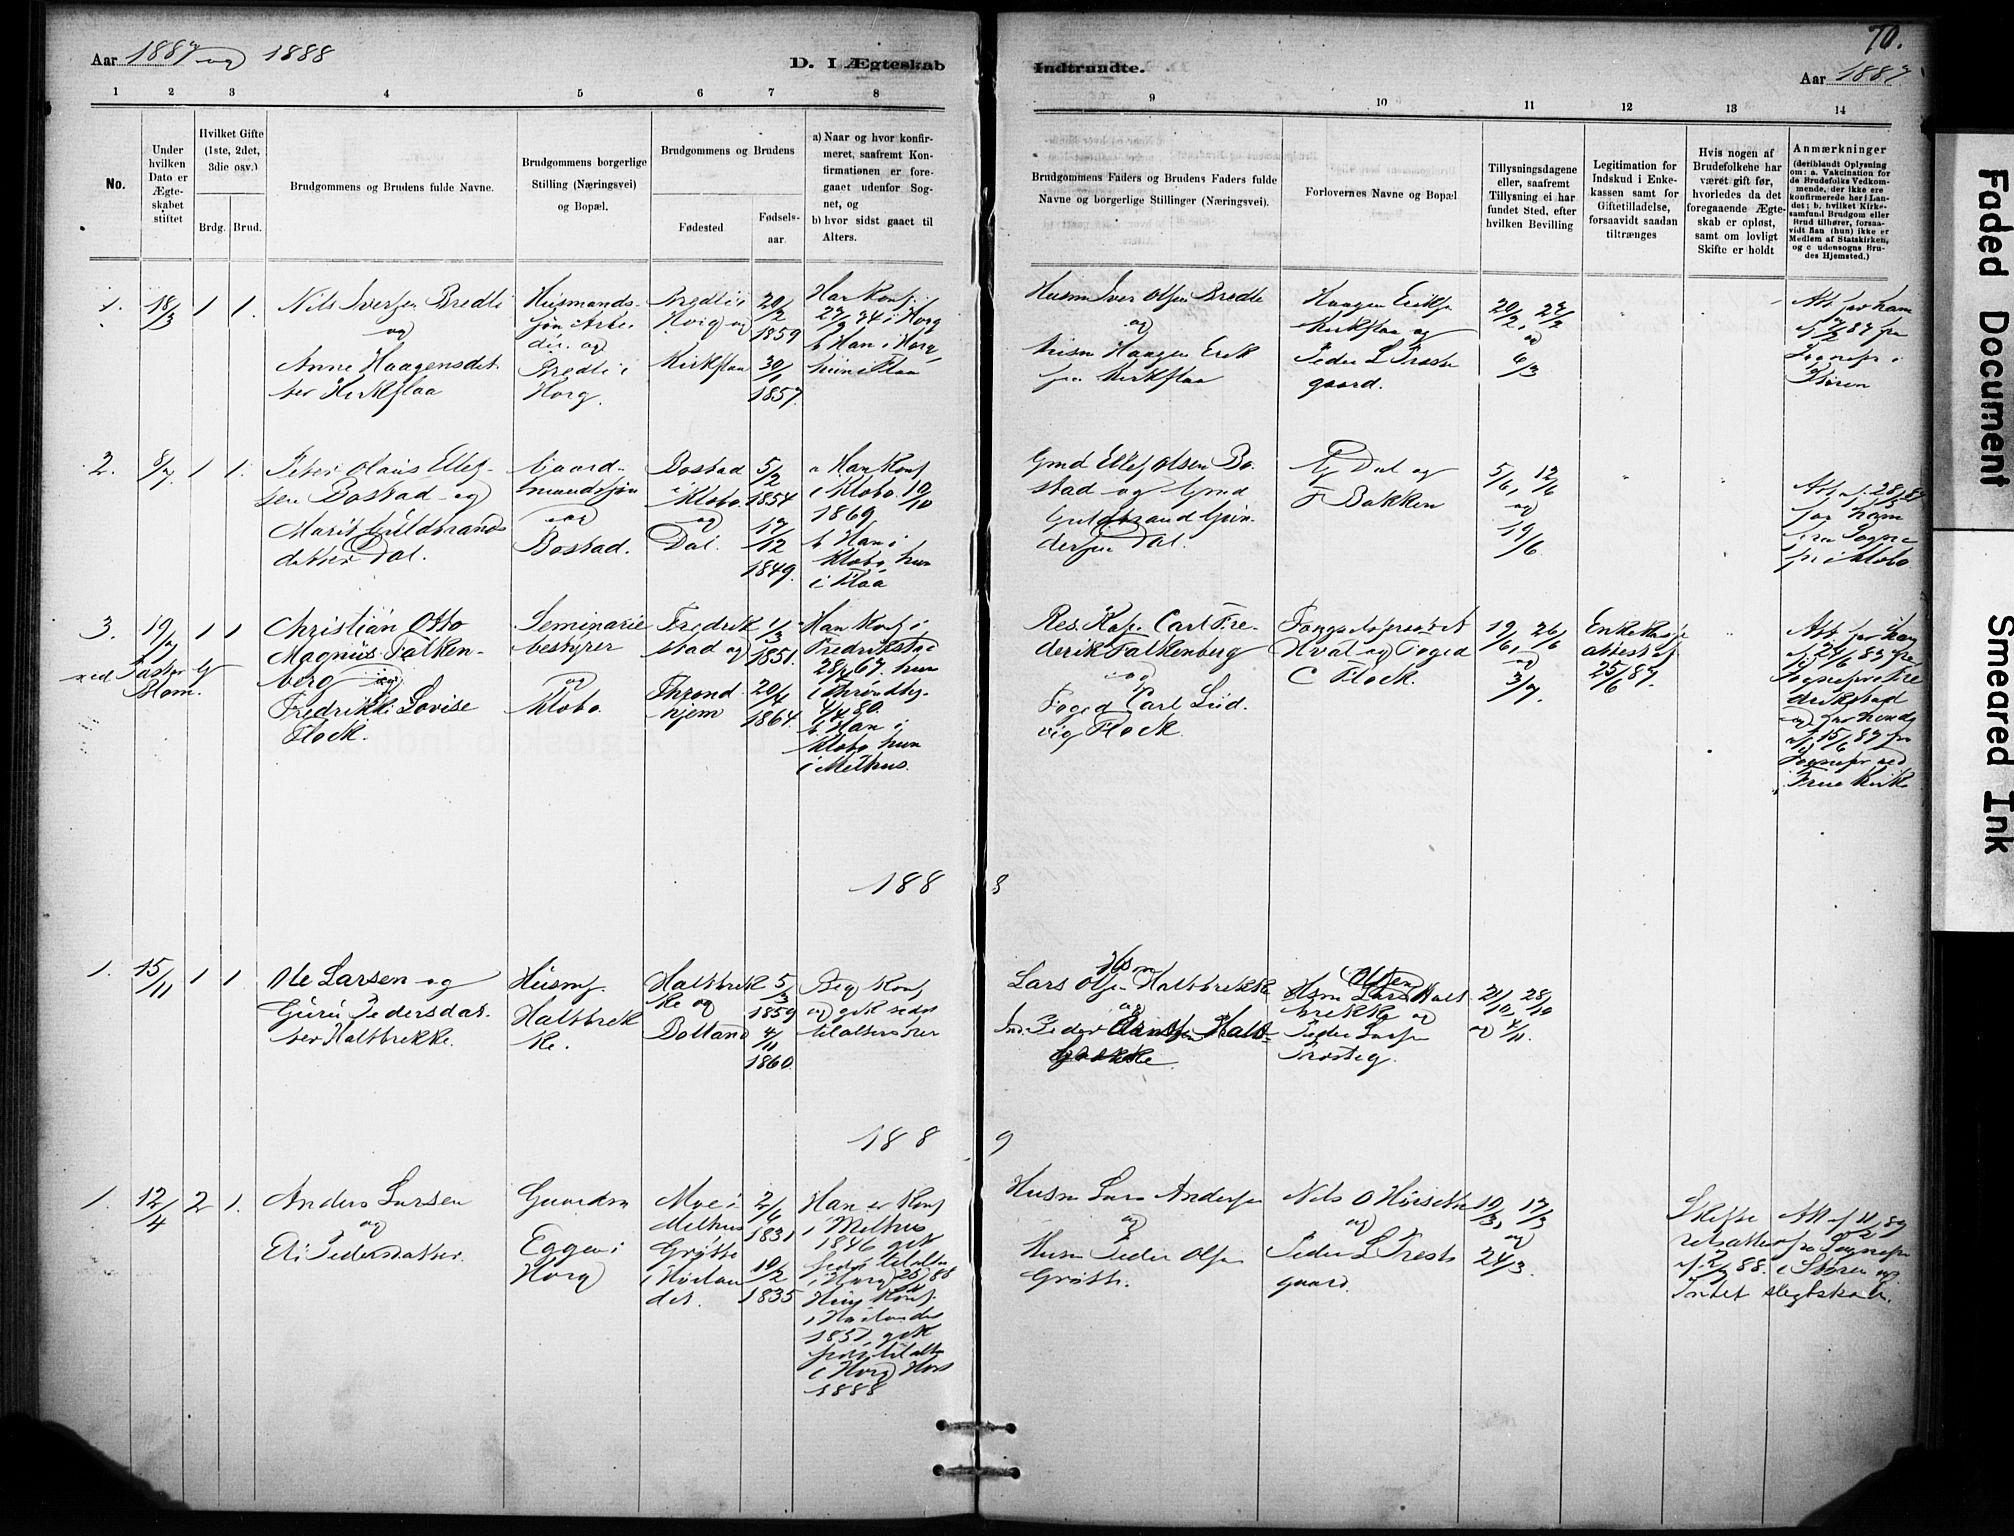 Aar 1887 og 1888
D. I Ægteskab
Indtraadte.
70.
Aar 1887
1 2 3 4 5 6 7 8
9 10 11 12 13 14
No.
Under hvilken Dato er Ægteskabet stiftet
Hvilket Gifte (1ste, 2det, 3die osv.)
Brdg. Brud.
Brudgommens og Brudens fulde Navne.
Brudgommens borgerlige Stilling (Næringsvei) og Bopæl.
Brudgommens og Brudens
Fødested
Fødselsaar.
a) Naar og hvor konfirmeret, saafremt Konfirmationen er foregaaet udenfor Sognet, og
b) hvor sidst gaaet til Alters.
Brudgommens Faders og Brudens Faders fulde Navne og borgerlige Stillinger (Næringsvei).
Forlovernes Navne og Bopæl
Tillysningsdagene eller, saafremt Tillysning ei har fundet Sted, efter hvilken Bevilling
Legitimation for Indskud i Enkekassen samt for Giftetilladelse, forsaavidt saadan tiltrænges
Hvis nogen af Brudefolkene har været gift før, hvorledes da det foregaaende Ægteskab er opløst, samt om lovligt Skifte er holdt
Anmærkninger
(deriblandt Oplysning om: a. Vakcination for de Brudefolks Vedkommende, der ikke ere konfirmerede her i Landet; b. hvilket Kirkesamfund Brudgom eller Brud tilhører, forsaavidt han (hun) ikke er Medlem af Statskirken, og c udensogns Brudes Hjemsted.)
1. 18/3 1 1.
Nils Iversen Bredli
og
Anne Haagensdat
ter Kirkflaa
Husmands-
søn Arbei
der og
Bredli i
Horg.
Bredli i
Horg og
Kirkflaa
20/2
1859
30/1
1857.
Han Konf.
i Horg
b Han i Horg,
hun i Flaa
Husm Iver Olsen Bredli
og
Husm Haagen Erik
sen Kirkflaa
Haagen Eriks.
Kirkflaa og
Peder L Træste
gaard.
20/2, 27/2
og
6/3
Att. for ham
fra
Sognepr i
Støren
2. 8/7 1 1.
Peter Olaus Ellef-
sen Bostad og
Marit Guldbrands
datter Dal.
Gaard-
mandssøn
og
Bostad.
Bostad
i Klæbo
og
Dal.
5/2
1854
17/12
1849.
a Han Konf
i Klæbo 10/10
1869
b Han i
Klæbo, hun
i Flaa
Gmd Ellef Olsen Bo.
stad og Gmd
Guldbrand Gun.
dersen Dal.
Dal og
F Bakken
5/6, 12/6
og
19/6
Att af 28/5 87
for ham
fra Sogne
pr i Klæbo
3. 19/7 1 1
ved Pastor
Blom.
Christian Otto
Magnus Falken-
berg og
Fredrikke Lovise
Flock.
Seminarie
bestyrer
og
Klæbo.
Fredrik
stad og
Thrond
hjem
1/3
1851.
20/4
1864
Han Konf i
Fredrikstad
67. hun
i Throndhj.
80.
b Han i
Klæbo, hun
i Melhus.
Res. Kap. Carl Fre-
derik Falkenberg
og
Foged Carl Lud.
vig Flock.
Hval og Foged
C Flock.
19/6, 26/6
og
3/7.
Enkekasse
attest af
25/6 87.
Att for ham
af 87 fra
Sognepr Fre
derikstad
og for hende
af 15/6 87 fra
Sognepr ved
Frue Kirke
1888
1. 15/11 1 1
Ole Larsen og
Guru Pedersdat.
ter Haltbrekke.
Husm.
Haltbrek
ke.
Haltbrek
ke og
5/3
1859
4/11
1860
Beg. Konf
og gik sidst
til alters her
Husm
Lars Olsen Haltbrekke
og
Peder Halt-
brekke
Husm Lars Olsen Halt
brekke og
Peder Larsen
Træsteg.
21/10, 28/10
og 4/11.
1889
1. 12/4 2 1.
Anders Larsen
og
Eli Pedersdatter.
Gaardm
Eggen i
Horg
Moe i
Melhus
Grøtte
i Høilan
det.
2/6
1831
19/2
1835
Han er Konf
i Melhus
1846 gik
sidst til alters
i Horg 88
Hun Konf.
i Høilandet
1851, gik
sidst til alters
i Horg Høst
1888
Husm Lars Andersen
og
Husm Peder Olsen
Grøtte.
Nils O Hørsette
og
Peder L Træste
gaard.
10/3, 17/3
og
24/3.
Skifte
retsattest
af 88.
Intet slegtskab.
Att af 89
fra Sognepr
i Støren og
Faded Document
Smeared Ink